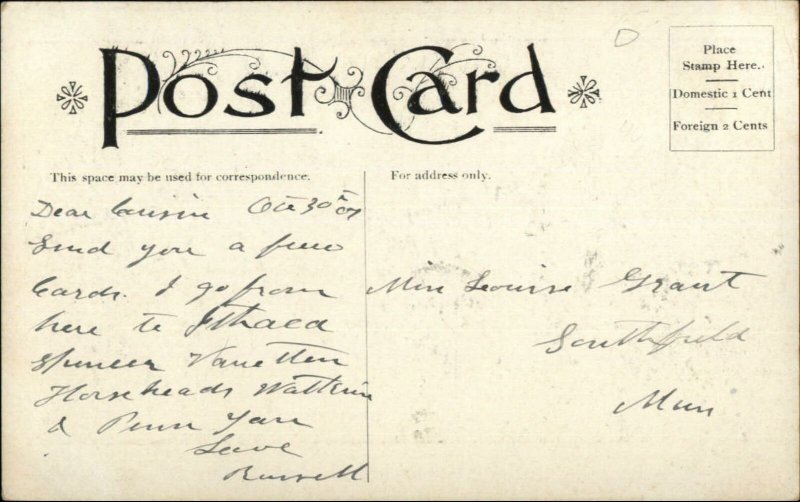 Post Card
Place
Stamp Here.
Domestic 1 Cent
Foreign 2 Cents
This space may be used for correspondence.
For address only.
Dear Cousin Oct 30th 07
Send you a few
Cards. I go from
here to Ithaca
Spencer Van Etten
Horseheads Watkins
& Penn Yan
Love
Russell
Miss Louise Grant
Southfield
Mass